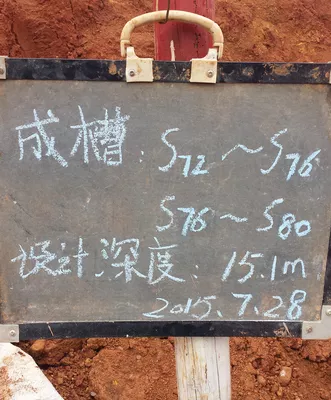 成槽：S72～S76
S76～S80
设计深度：15.1m
2015.7.28